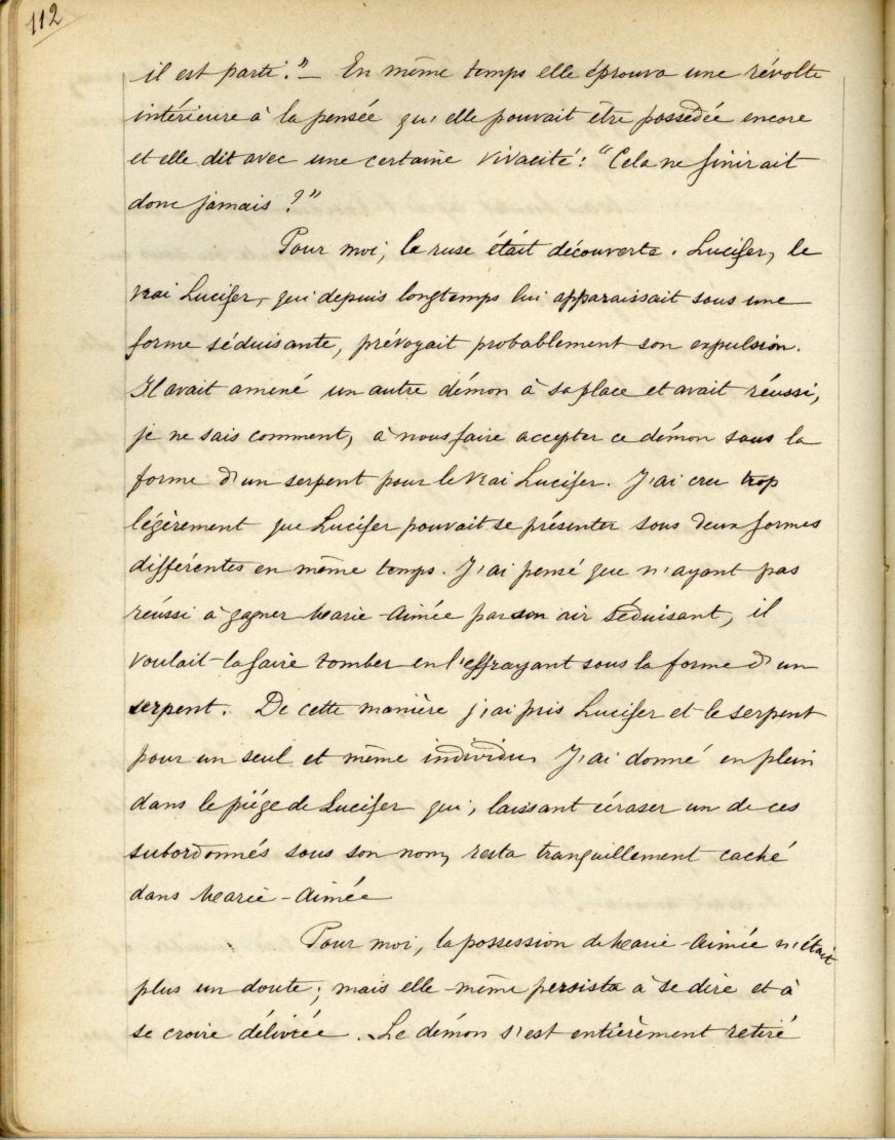 112
il est parti." — En même temps elle éprouva une révolte
intérieure à la pensée qu'elle pouvait être possédée encore
et elle dit avec une certaine vivacité : "Cela ne finirait
donc jamais ?"
Pour moi, la ruse était découverte. Lucifer, le
vrai Lucifer, qui depuis longtemps lui apparaissait sous une
forme séduisante, prévoyait probablement son expulsion.
Il avait amené un autre démon à sa place et avait réussi,
je ne sais comment, à nous faire accepter ce démon sous la
forme d'un serpent pour le vrai Lucifer. J'ai cru trop
légèrement que Lucifer pouvait se présenter sous deux formes
différentes en même temps. J'ai pensé que n'ayant pas
réussi à gagner Marie-Aimée par son air séduisant, il
voulait la faire tomber en l'effrayant sous la forme d'un
serpent. De cette manière j'ai pris Lucifer et le serpent
pour un seul et même individu. J'ai donné en plein
dans le piége de Lucifer qui, laissant écraser un de ces
subordonnés sous son nom, resta tranquillement caché
dans Marie-Aimée
Pour moi, la possession de Marie-Aimée n'était
plus un doute ; mais elle-même persista à se dire et à
se croire délivrée. Le démon s'est entièrement retiré